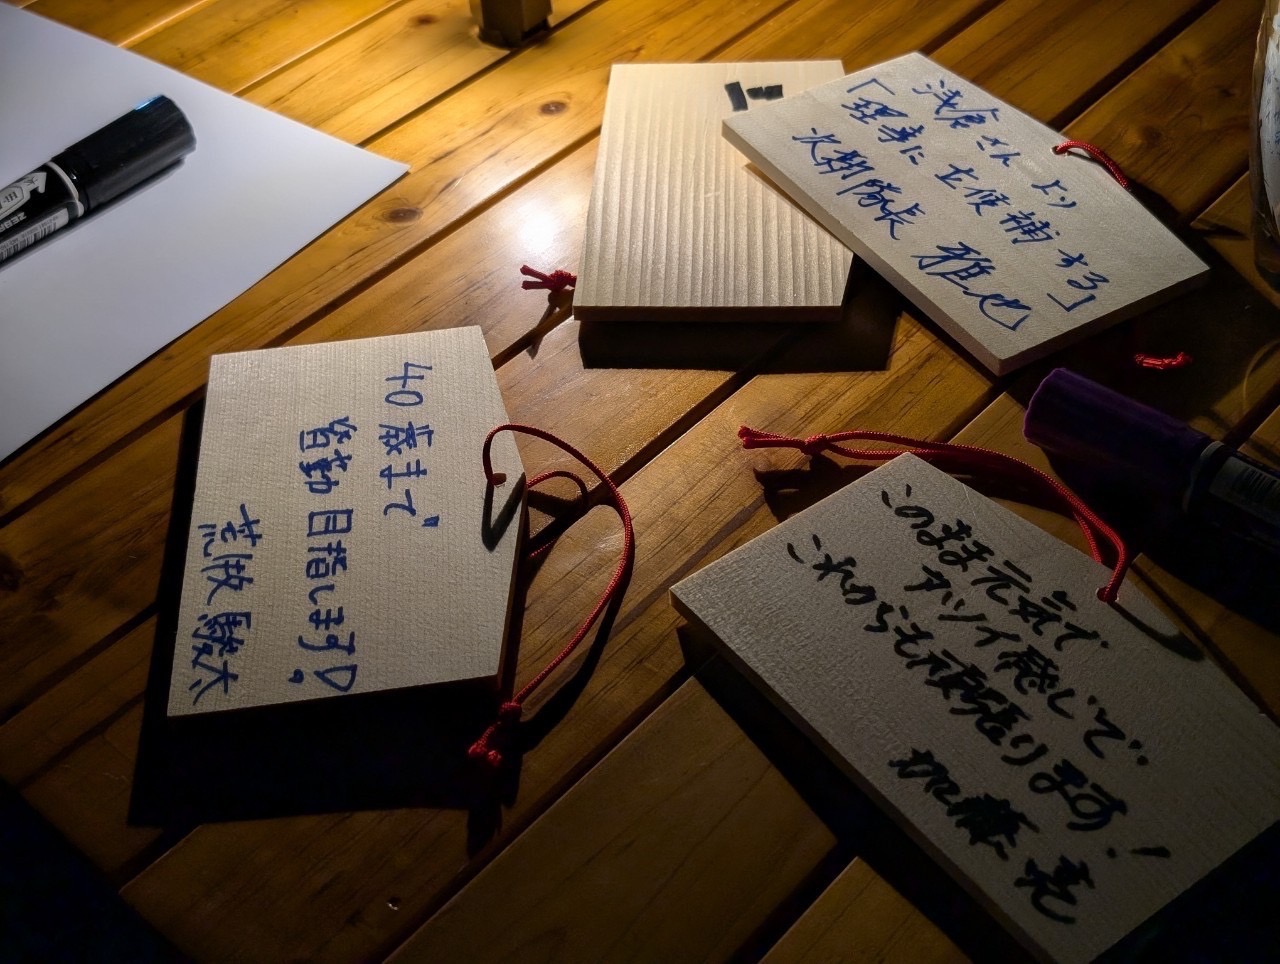 浅倉さんより
「理事に立候補する」
次期隊長 雅也
40歳まで
皆勤目指します!
荒牧 駿太
このまま元気で
アツイ感じで
これからも頑張ります!
加藤 亮
ZEBRA